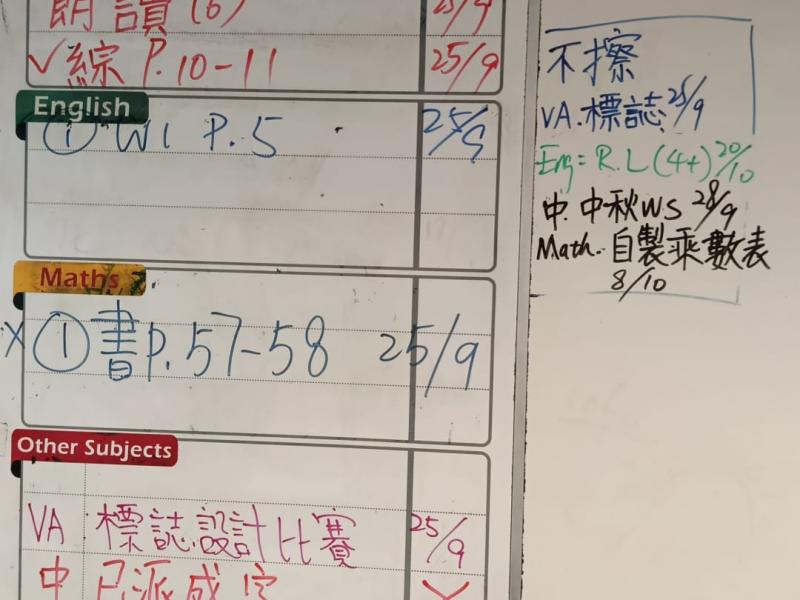 朗讀(6) 25/9
✓綜 P.10-11 25/9
English
① W1 P.5 25/9
Maths
X ① 書P.57-58 25/9
Other Subjects
VA 標誌設計比賽 25/9
中 已派成定 ✓
不擦
VA.標誌 25/9
Eng = R.L (4+) 20/10
中. 中秋WS 28/9
Math. 自製乘數表
8/10